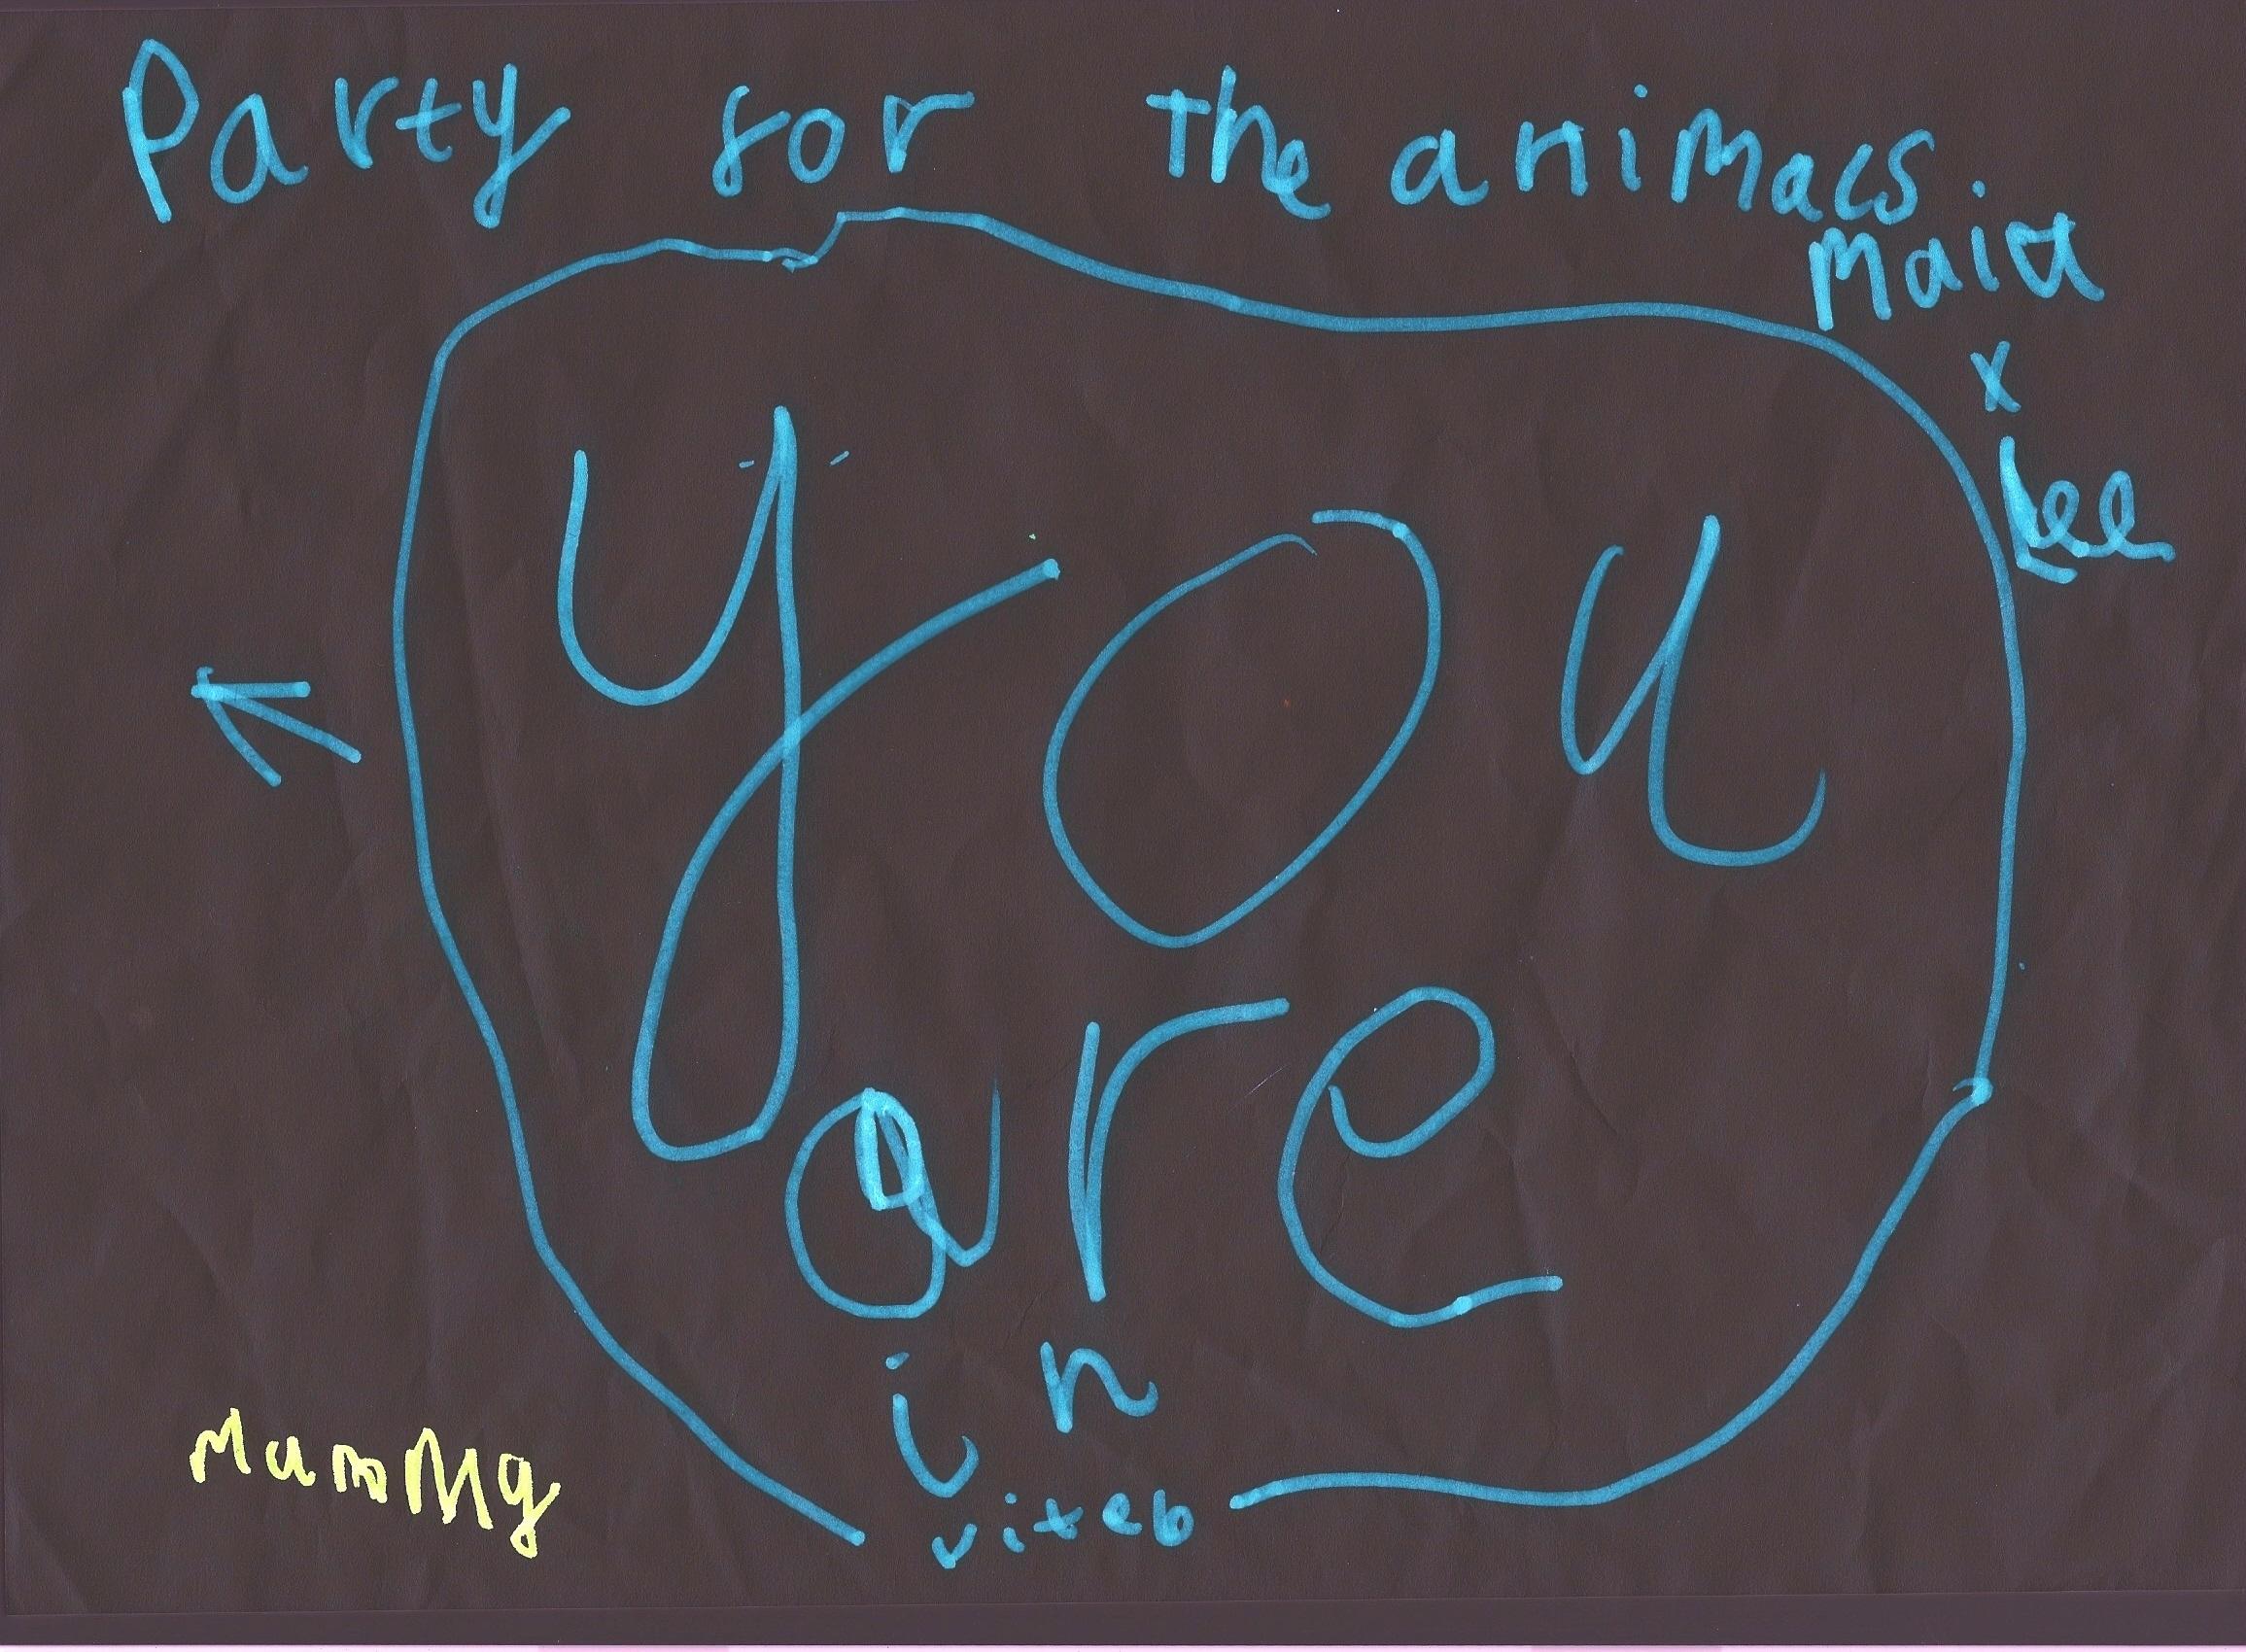 Party for the animals.
Maia
x
Lee
you
are
in
viteb
mummy